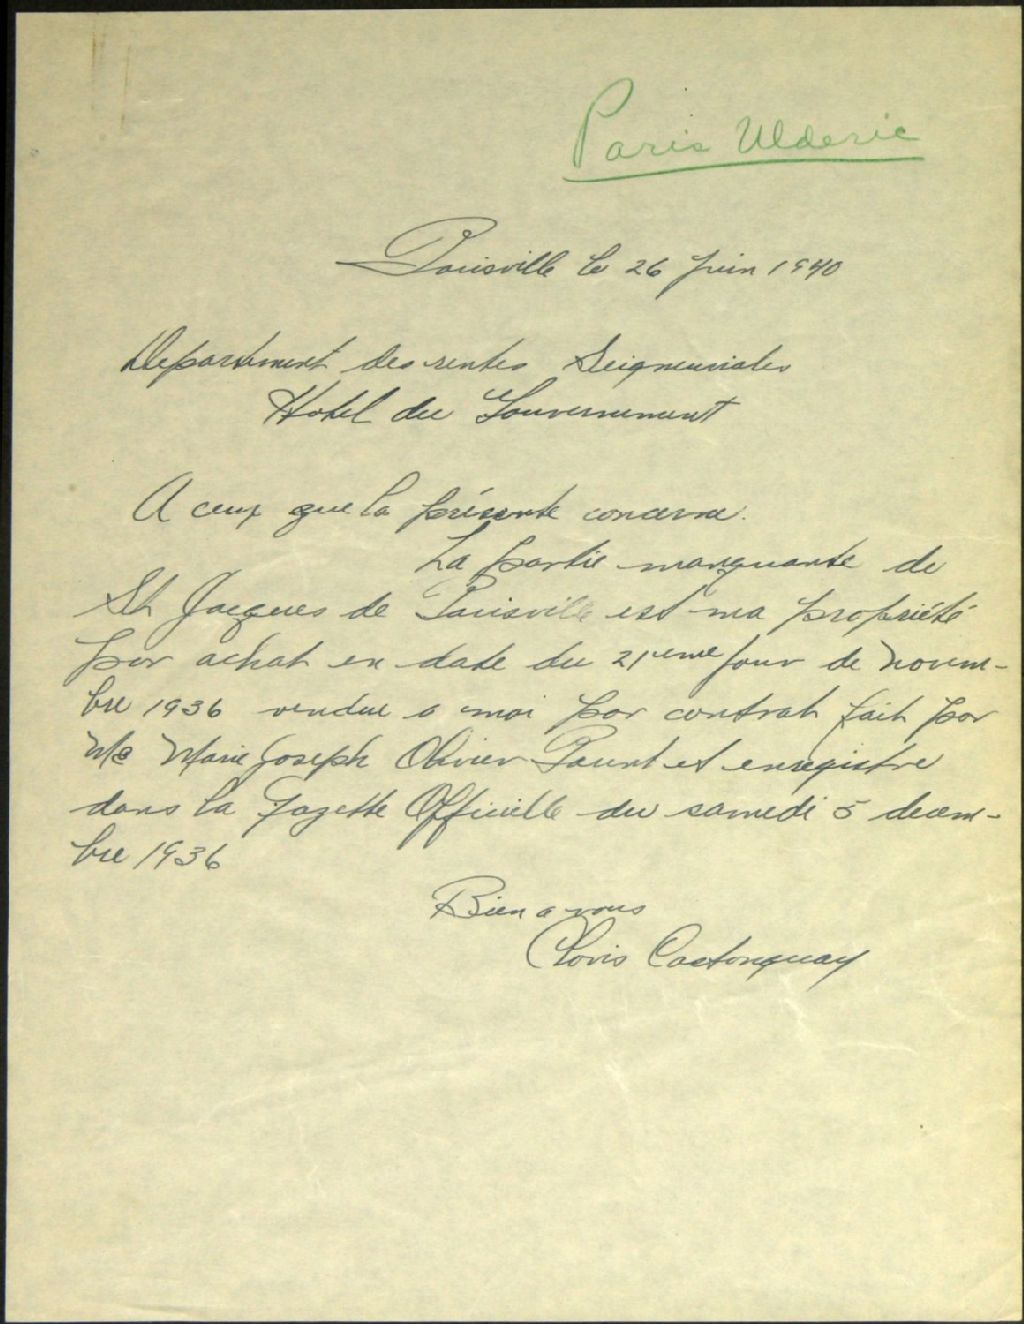 Paris Ulderic
Parisville le 26 juin 1940
Department des rentes Seigneuriales
Hotel du Gouvernement
A ceux que la présente concerne.
La partie manquante de
St Jacques de Parisville est ma propriété
par achat en date du 21ieme jour de novem-
bre 1936 vendue a moi par contrat fait par
Me Marie Joseph Olivier et enregistre
dans la Gazette Officielle du samedi 5 decem-
bre 1936
Bien a vous
Clovis Castonguay